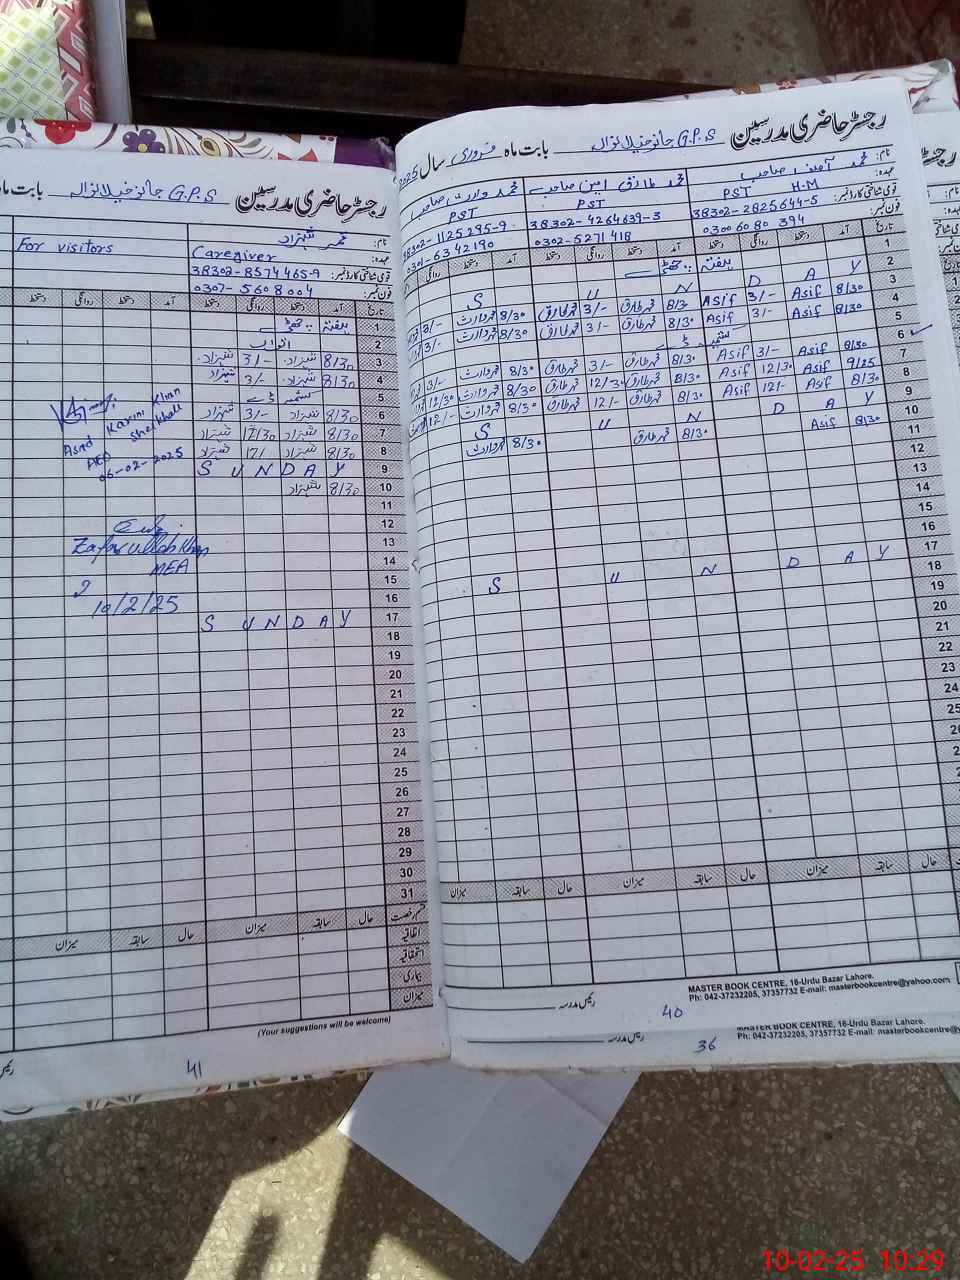 رجسٹر حاضری مدرسین G.P.S بابت ماہ
نام:
عہدہ: Caregiver
قومی شناختی کارڈ نمبر: 38302-8574465-9
فون نمبر: 0307-5608004
For visitors
تاریخ آمد دستخط روانگی دستخط آمد دستخط روانگی دستخط
1
2
3 8/30 شہزاد 3/- شہزاد
4 8/30 شہزاد 3/- شہزاد
5
6 8/30 شہزاد 3/- شہزاد
7 8/30 شہزاد 12/30 شہزاد
8 8/30 شہزاد 12/ شہزاد
9 SUNDAY
10 8/30 شہزاد
11
12
13
14
15
16
17 SUNDAY
18
19
20
21
22
23
24
25
26
27
28
29
30
31
Asad Karim Khan
AEO
06-02-2025
Zafar ullah Khan
MEA
10/2/25
قسم رخصت حال سابقہ میزان حال سابقہ میزان
اتفاقیہ
استحقاقیہ
بیماری
میزان
(Your suggestions will be welcome)
رئیس
41
رجسٹر حاضری مدرسین G.P.S بابت ماہ فروری سال 2025
نام: محمد آصف صاحب
محمد طارق امین صاحب
محمد وارث صاحب
عہدہ: PST H.M
PST
PST
قومی شناختی کارڈ نمبر: 38302-2825644-5
38302-4264639-3
38302-1125295-9
فون نمبر: 0300 6080 394
0302-5271418
0301-6342190
تاریخ آمد دستخط روانگی دستخط آمد دستخط روانگی دستخط آمد دستخط روانگی
1
2 SUNDAY
3 8/30 Asif 3/- Asif 8/30 محمد طارق 3/- محمد طارق 8/30 محمد وارث 3/-
4 8/30 Asif 3/- Asif 8/30 محمد طارق 3/- محمد طارق 8/30 محمد وارث 3/-
5
6 8/30 Asif 3/- Asif 8/30 محمد طارق 3/- محمد طارق 8/30 محمد وارث 3/-
7 9/25 Asif 12/30 Asif 8/30 محمد طارق 12/30 محمد طارق 8/30 محمد وارث 12/30
8 8/30 Asif 12/- Asif 8/30 محمد طارق 12/- محمد طارق 8/30 محمد وارث 12/-
9 SUNDAY
10 8/30 Asif 8/30 محمد طارق 8/30 محمد وارث
11
12
13
14
15
16
17 SUNDAY
18
19
20
21
22
23
24
25
حال سابقہ میزان حال سابقہ میزان حال سابقہ میزان
MASTER BOOK CENTRE, 16-Urdu Bazar Lahore.
Ph: 042-37232205, 37357732 E-mail: masterbookcentre@yahoo.com
رئیس مدرسہ
40
MASTER BOOK CENTRE, 16-Urdu Bazar Lahore.
Ph: 042-37232205, 37357732 E-mail: masterbookcentre@
رئیس مدرسہ
36
10-02-25 10:29